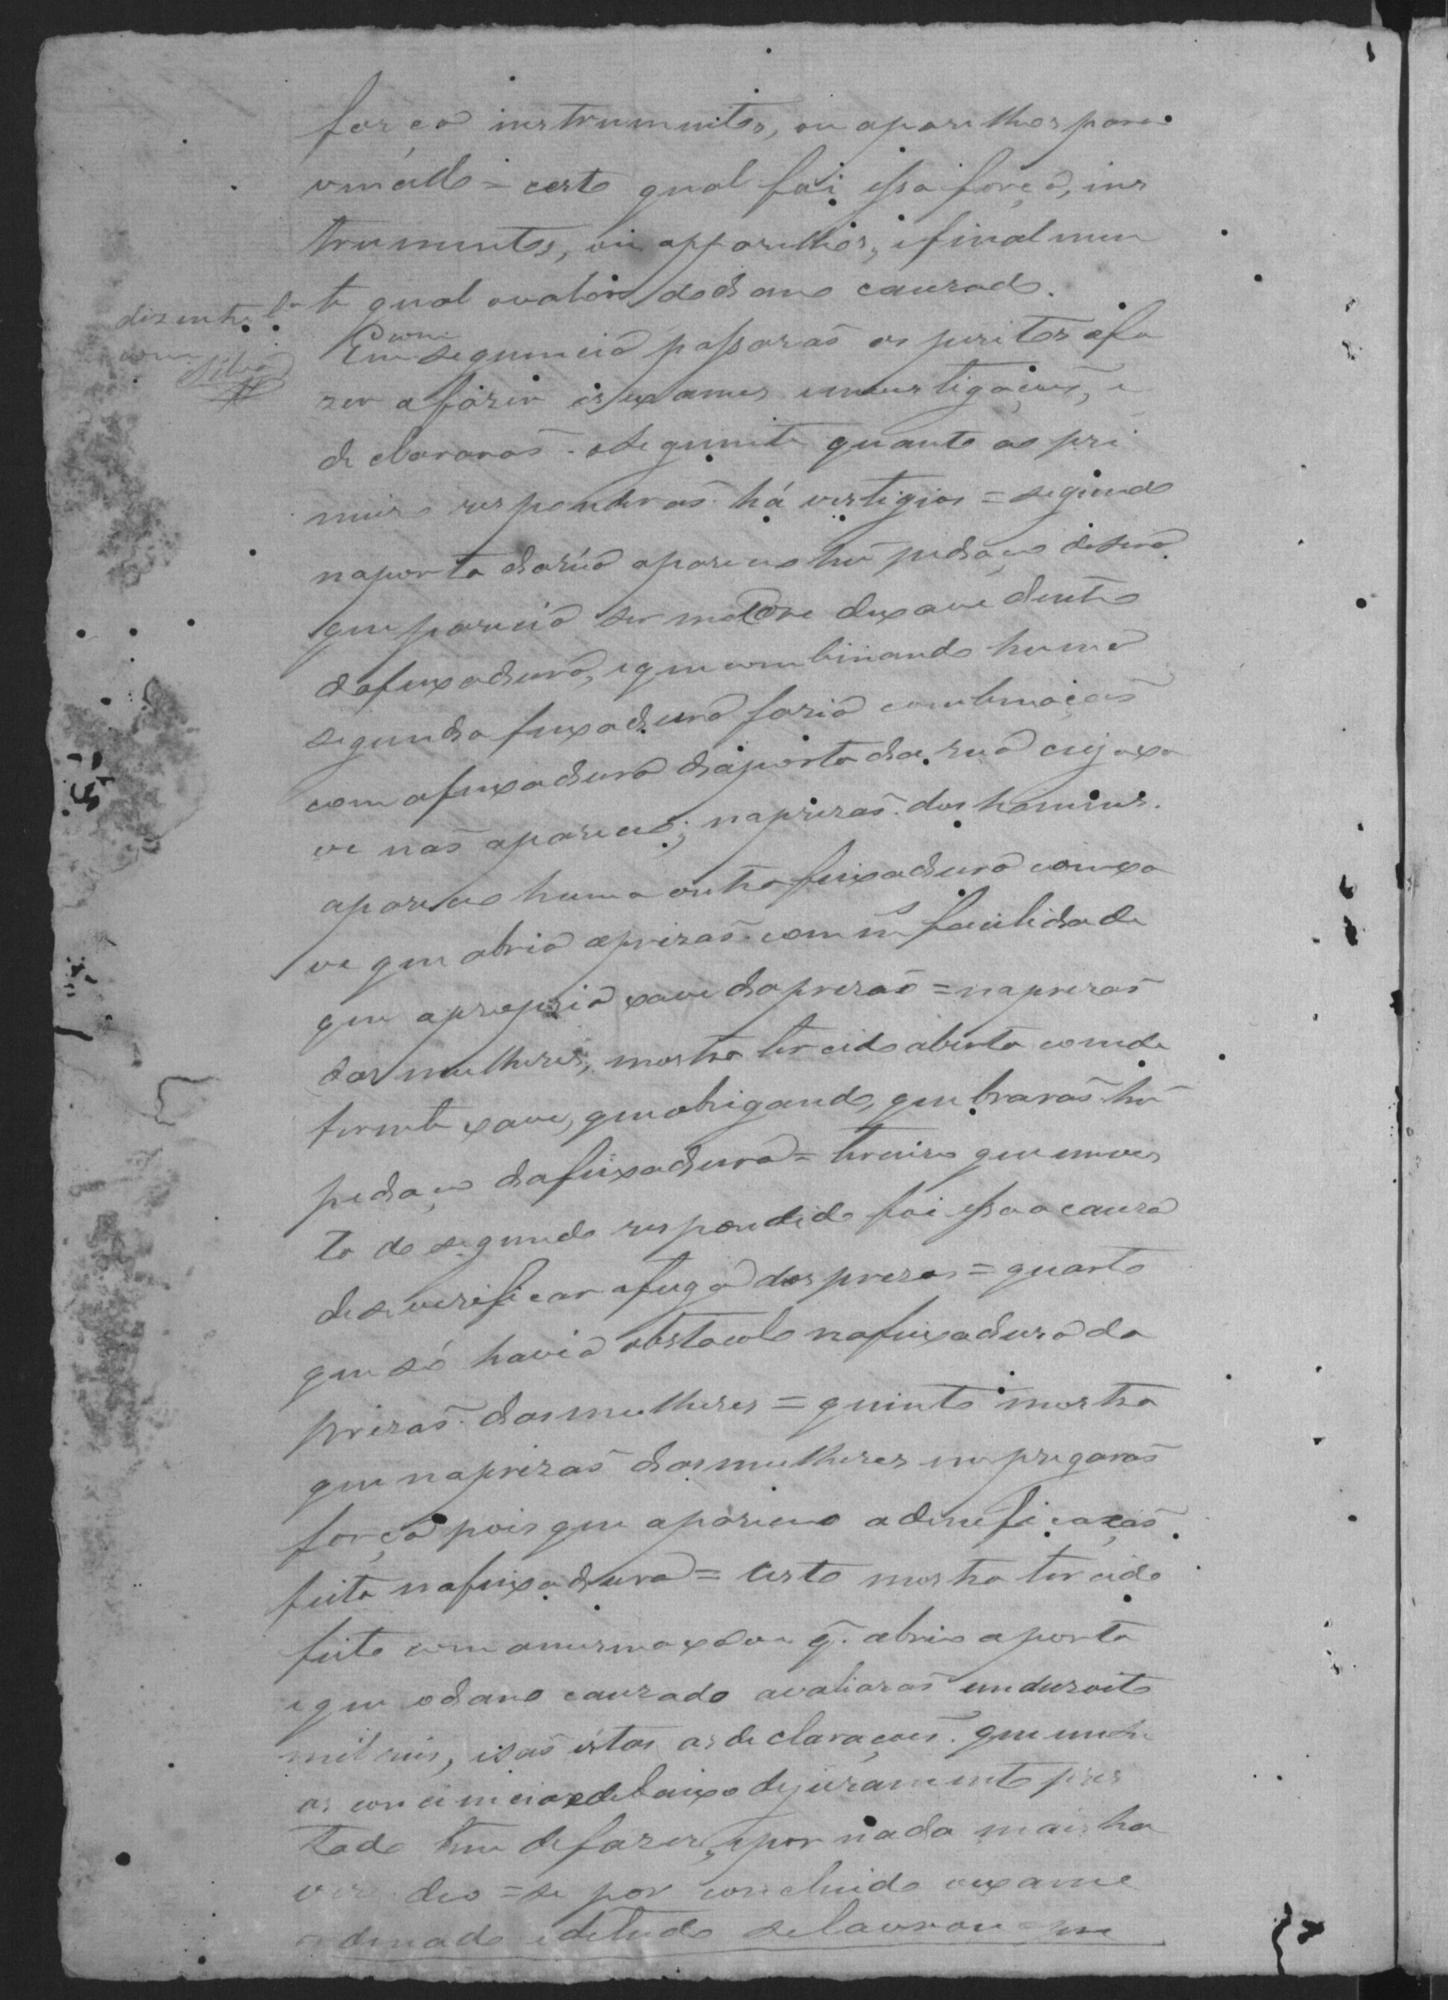 força instrumentos, ou aparelhos para
vencello = certo qual foi essa força, ins
trumentos, ou apparelhos, e final men
te qual o valor do dano causado.
diz entre l.
com
Silva
Em seguencia passarão os peritos afa
zer a fazer os exames e investigações, e
declararão o seguinte quanto ao pri
meiro responderão há vestigios = segundo
na porta da rúa apareceo hũ pedaço de sera
que parecia ser molde de xave dentro
da feixadura, e que combinando huma
segunda feixadura fazia combinação
com a feixadura da porta da rua cuja xa
ve não apareceo; na prizão dos homens
apareceo huma outra feixadura com xa
ve que abria a prizão com m facilidade
que a propria xave da prizão = na prizão
das mulheres, mostra ter cido aberta com de
ferente xave, que obrigando, quebrarão hũ
pedaço da feixadura = terceiro que em vis
ta do segundo respondido foi essa a causa
de se verificar a fuga dos prezos = quarto
que só havia obstaculo na feixadura da
prizão das mulheres = quinto mostra
que na prizão das mulheres empregarão
força pois que apareceo a deneficação
feita na feixadura = certo mostra ter cido
feito com a mesma xave q. abrio a porta
e que o dano causado avaliarão em dezoito
mil reis, e são éstas as declarações que em
os conciencia e debaixo de juramento pres
tado tem de fazer, e por nada mais ha
ver deo = se por concluido o exame
ordenado e de tudo se lavrou